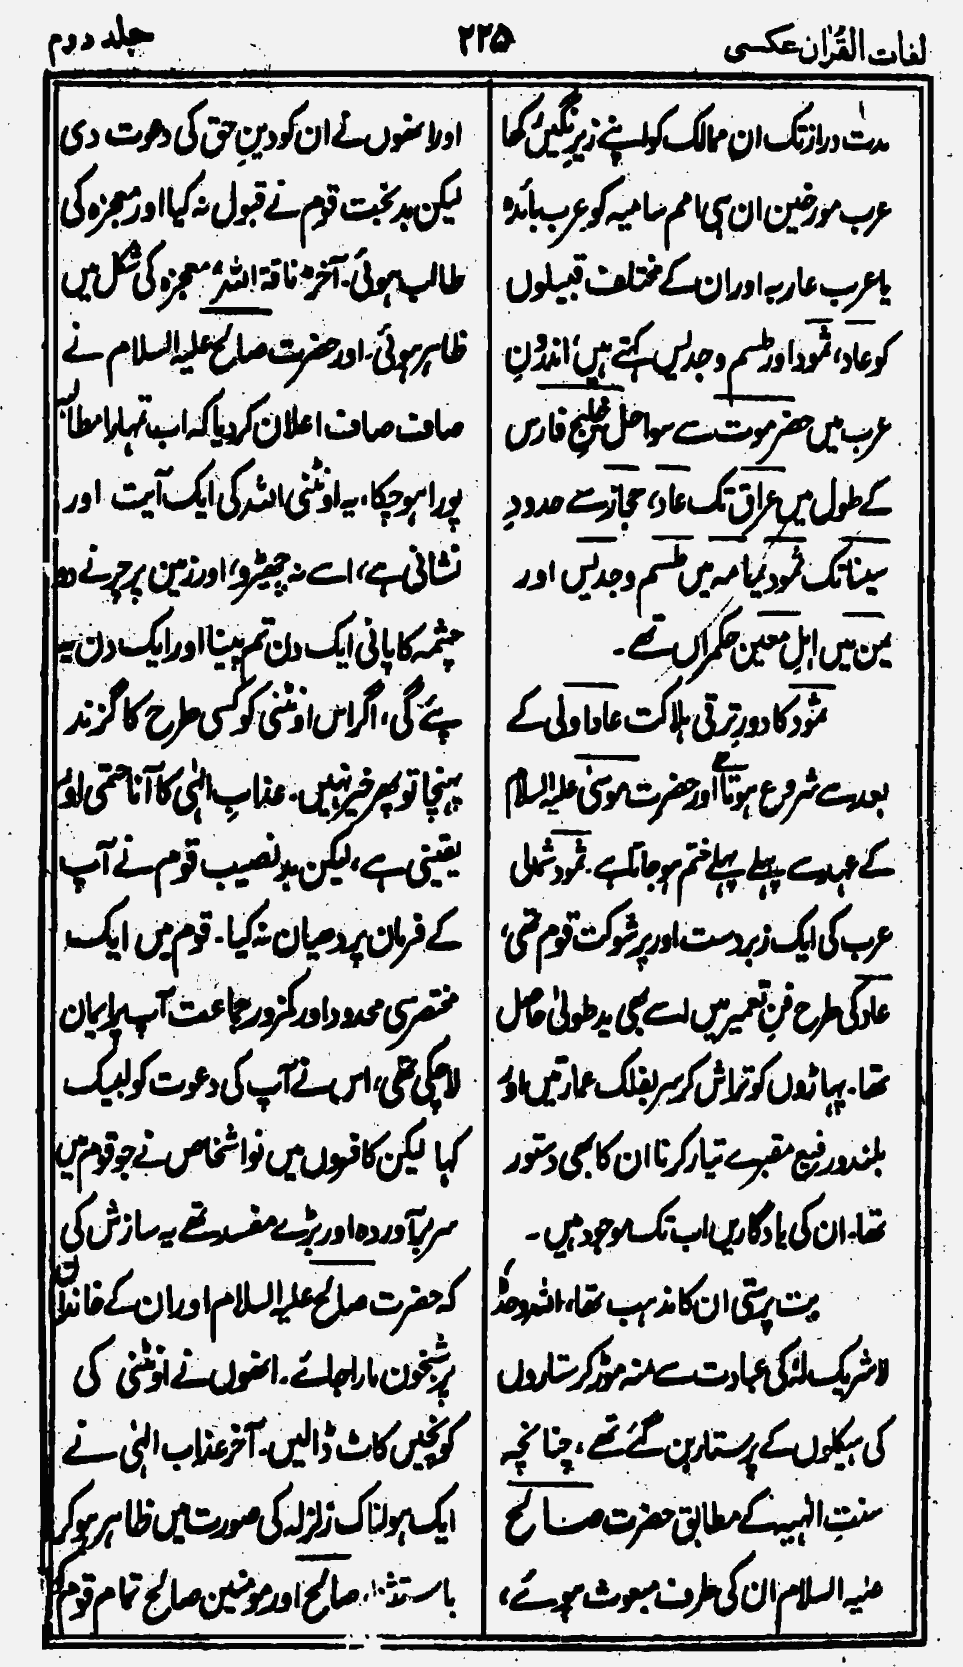 لغات القرآن عکسی
۲۲۵
جلد دوم
مدت دراز تک ان ممالک کو اپنے زیرِ نگیں رکھا
عرب مورخین ان ہی امم سامیہ کو عرب بائدہ
یا عرب عاربہ اور ان کے مختلف قبیلوں
کو عاد، ثمود اور طسم وجدیس کہتے ہیں، اندرونِ
عرب میں حضرموت سے سواحل خلیج فارس
کے طول میں عراق تک عاد، حجاز سے حدودِ
سینا تک ثمود یمامہ میں طسم وجدیس اور
یمن میں اہلِ معین حکمراں تھے۔
ثمود کا دورِ ترقی ہلاکت عادِ اولیٰ کے
بعد سے شروع ہوتا ہے اور حضرت موسیٰ علیہ السلام
کے عہد سے پہلے پہلے ختم ہو جاتا ہے۔ ثمود شمالی
عرب کی ایک زبردست اور پرشوکت قوم تھی،
عاد کی طرح فنِ تعمیر میں اسے بھی یدِ طولیٰ حاصل
تھا۔ پہاڑوں کو تراش کر سر بفلک عمارتیں اور
بلند و رفیع مقبرے تیار کرنا ان کا بھی دستور
تھا۔ ان کی یادگاریں اب تک موجود ہیں۔
بت پرستی ان کا مذہب تھا، اللہ وحدہٗ
لاشریک لہٗ کی عبادت سے منہ موڑ کر ستاروں
کی ہیکلوں کے پرستار بن گئے تھے، چنانچہ
سنتِ الٰہیہ کے مطابق حضرت صالح
علیہ السلام ان کی طرف مبعوث ہوئے،
اور انھوں نے ان کو دینِ حق کی دعوت دی
لیکن بدبخت قوم نے قبول نہ کیا اور معجزہ کی
طالب ہوئی۔ آخر ناقۃ اللہ، معجزہ کی شکل میں
ظاہر ہوئی۔ اور حضرت صالح علیہ السلام نے
صاف صاف اعلان کردیا کہ اب تمہارا مطالبہ
پورا ہو چکا، یہ اونٹنی اللہ کی ایک آیت اور
نشانی ہے، اسے نہ چھیڑو، اور زمین پر چرنے دو
چشمہ کا پانی ایک دن تم پینا اور ایک دن یہ
پئے گی، اگر اس اونٹنی کو کسی طرح کا گزند
پہنچا تو پھر خیر نہیں۔ عذابِ الٰہی کا آنا حتمی اور
یقینی ہے، لیکن بدنصیب قوم نے آپ
کے فرمان پر دھیان نہ کیا۔ قوم میں ایک
مختصر سی محدود اور کمزور جماعت آپ پر ایمان
لاچکی تھی، اس نے آپ کی دعوت کو لبیک
کہا لیکن کافروں میں نو اشخاص نے جو قوم میں
سربرآوردہ اور بڑے مفسد تھے یہ سازش کی
کہ حضرت صالح علیہ السلام اور ان کے خاندان
پر شبخون مارا جائے۔ انھوں نے اونٹنی کی
کونچیں کاٹ ڈالیں۔ آخر عذاب الٰہی نے
ایک ہولناک زلزلہ کی صورت میں ظاہر ہو کر
باستثناء صالح اور مومنین صالح تمام قوم